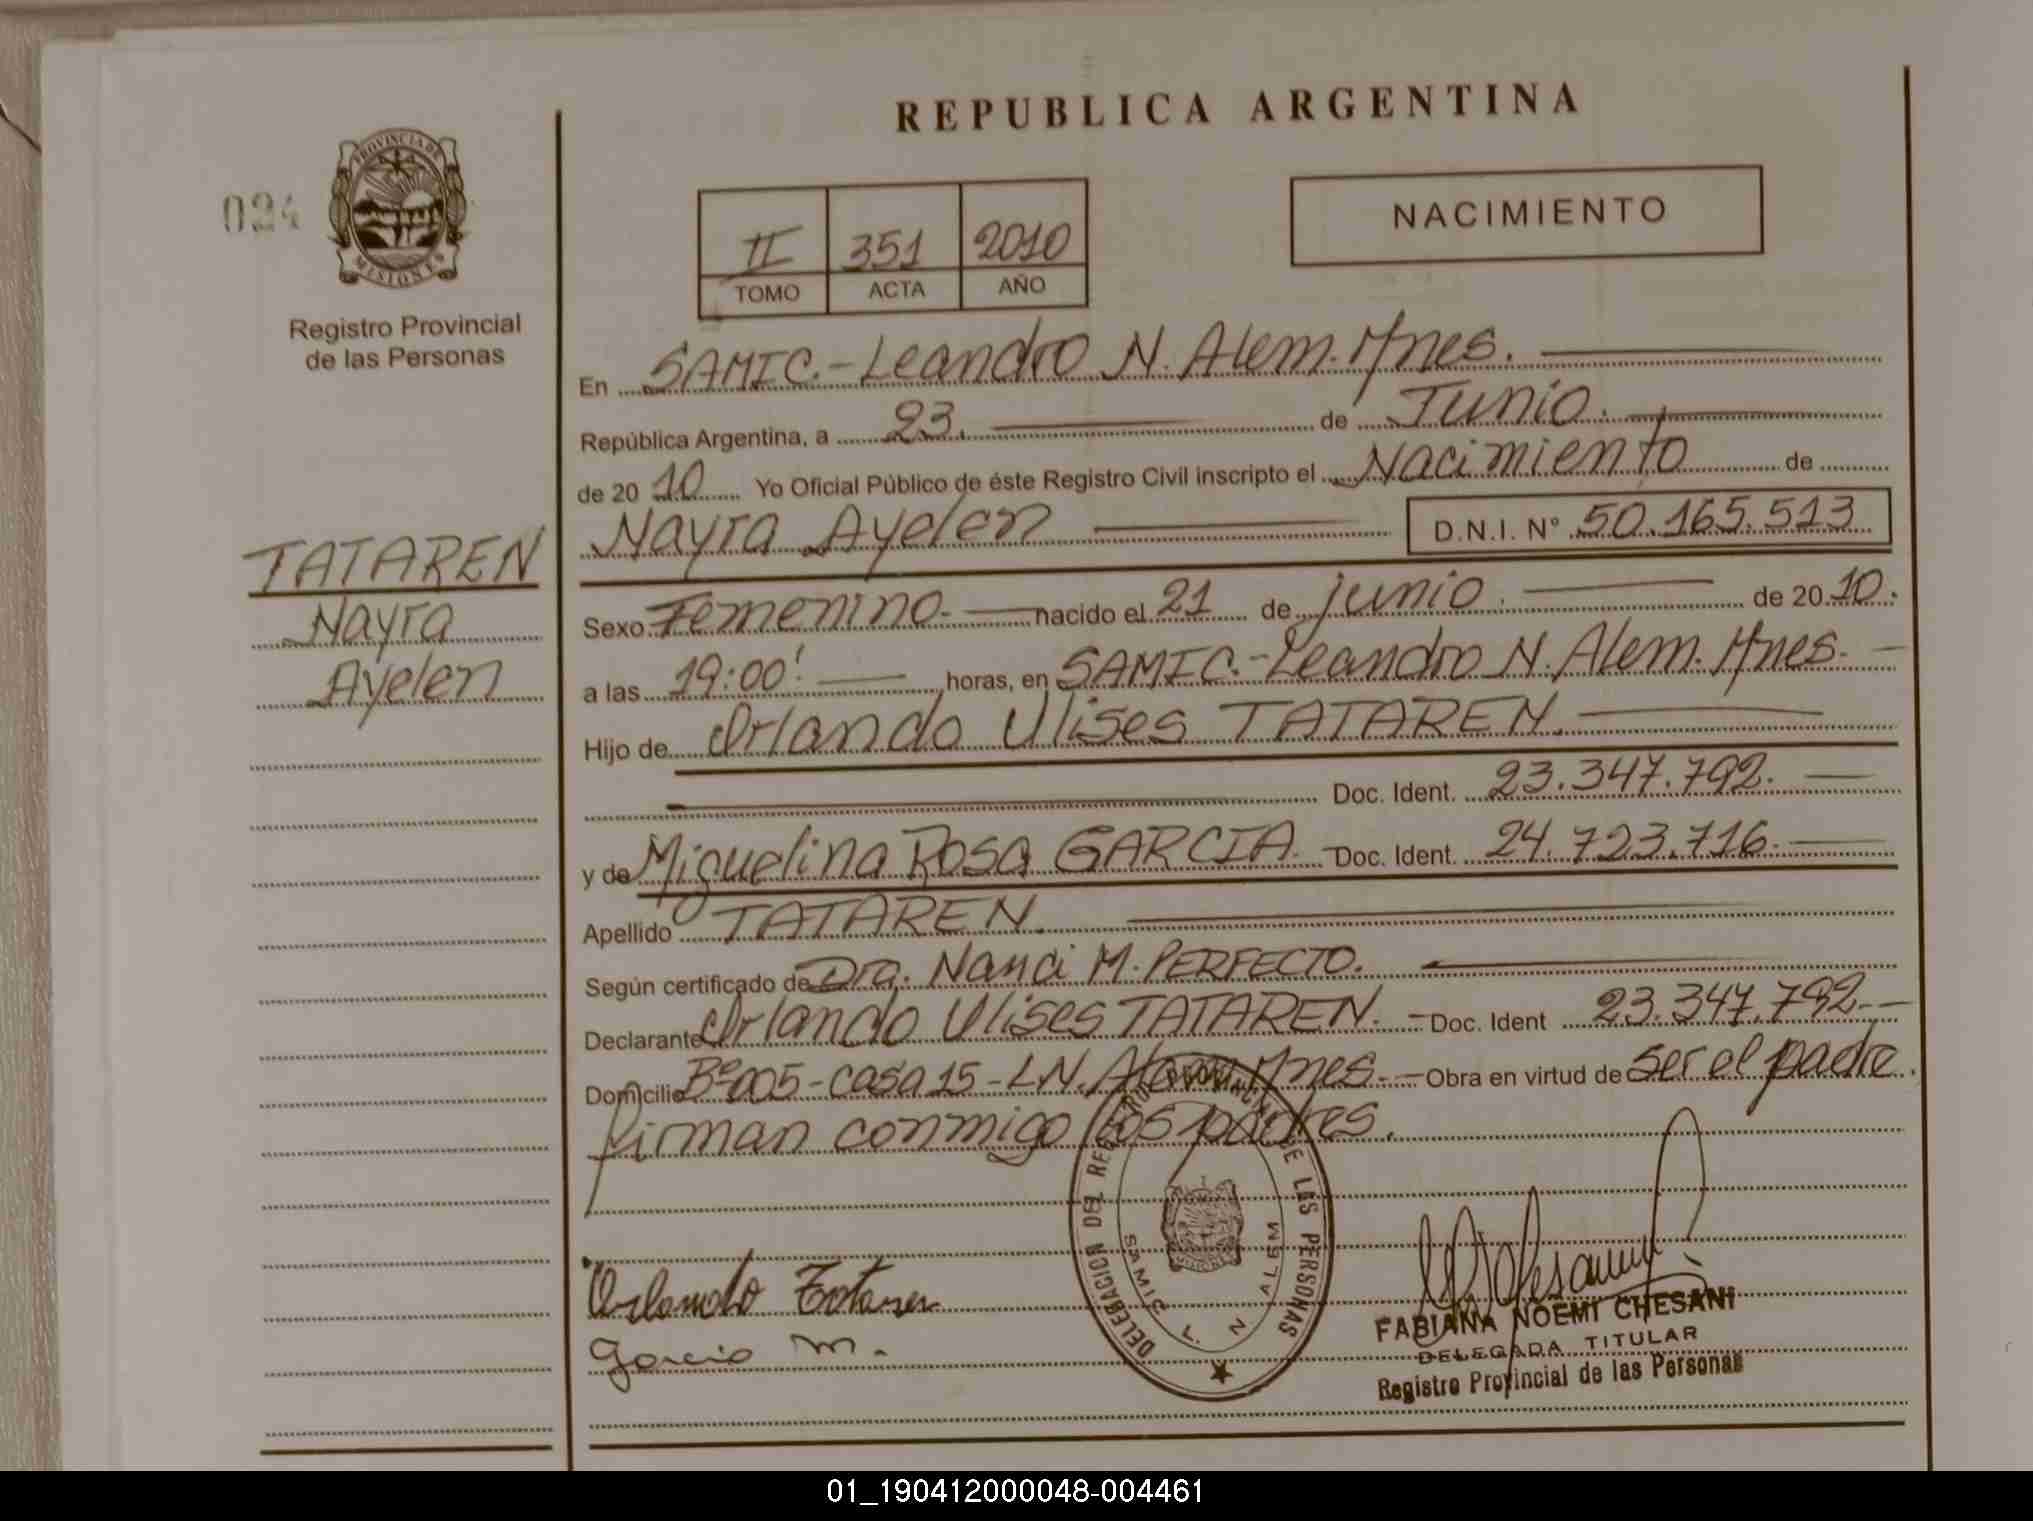 REPUBLICA ARGENTINA
024
PROVINCIA DE
MISIONES
Registro Provincial
de las Personas
II 351 2010
TOMO ACTA AÑO
NACIMIENTO
En SAMIC.-Leandro N. Alem. Mnes.
República Argentina, a 23. de Junio.
de 20 10 Yo Oficial Público de éste Registro Civil inscripto el Nacimiento de
Nayra Ayelen D.N.I. Nº 50.165.513
TATAREN
Nayra
Ayelen
Sexo Femenino. nacido el 21 de junio. de 20 10.
a las 19:00' horas, en SAMIC.-Leandro N. Alem. Mnes.
Hijo de Orlando Ulises TATAREN.
Doc. Ident. 23.347.792.
y de Miguelina Rosa GARCIA. Doc. Ident. 24.723.716.
Apellido TATAREN.
Según certificado de Dra. Nanci M. PERFECTO.
Declarante Orlando Ulises TATAREN. Doc. Ident 23.347.792.
Domicilio Bº 005-casa 15-LN. Alem Mnes. Obra en virtud de ser el padre.
firman conmigo los padres.
DELEGACION DEL REGISTRO PROVINCIAL DE LAS PERSONAS
SAMIC L. N ALEM
MISIONES
Orlando Tataren
Garcia M.
FABIANA NOEMI CHESANI
DELEGADA TITULAR
Registro Provincial de las Personas
01_190412000048-004461